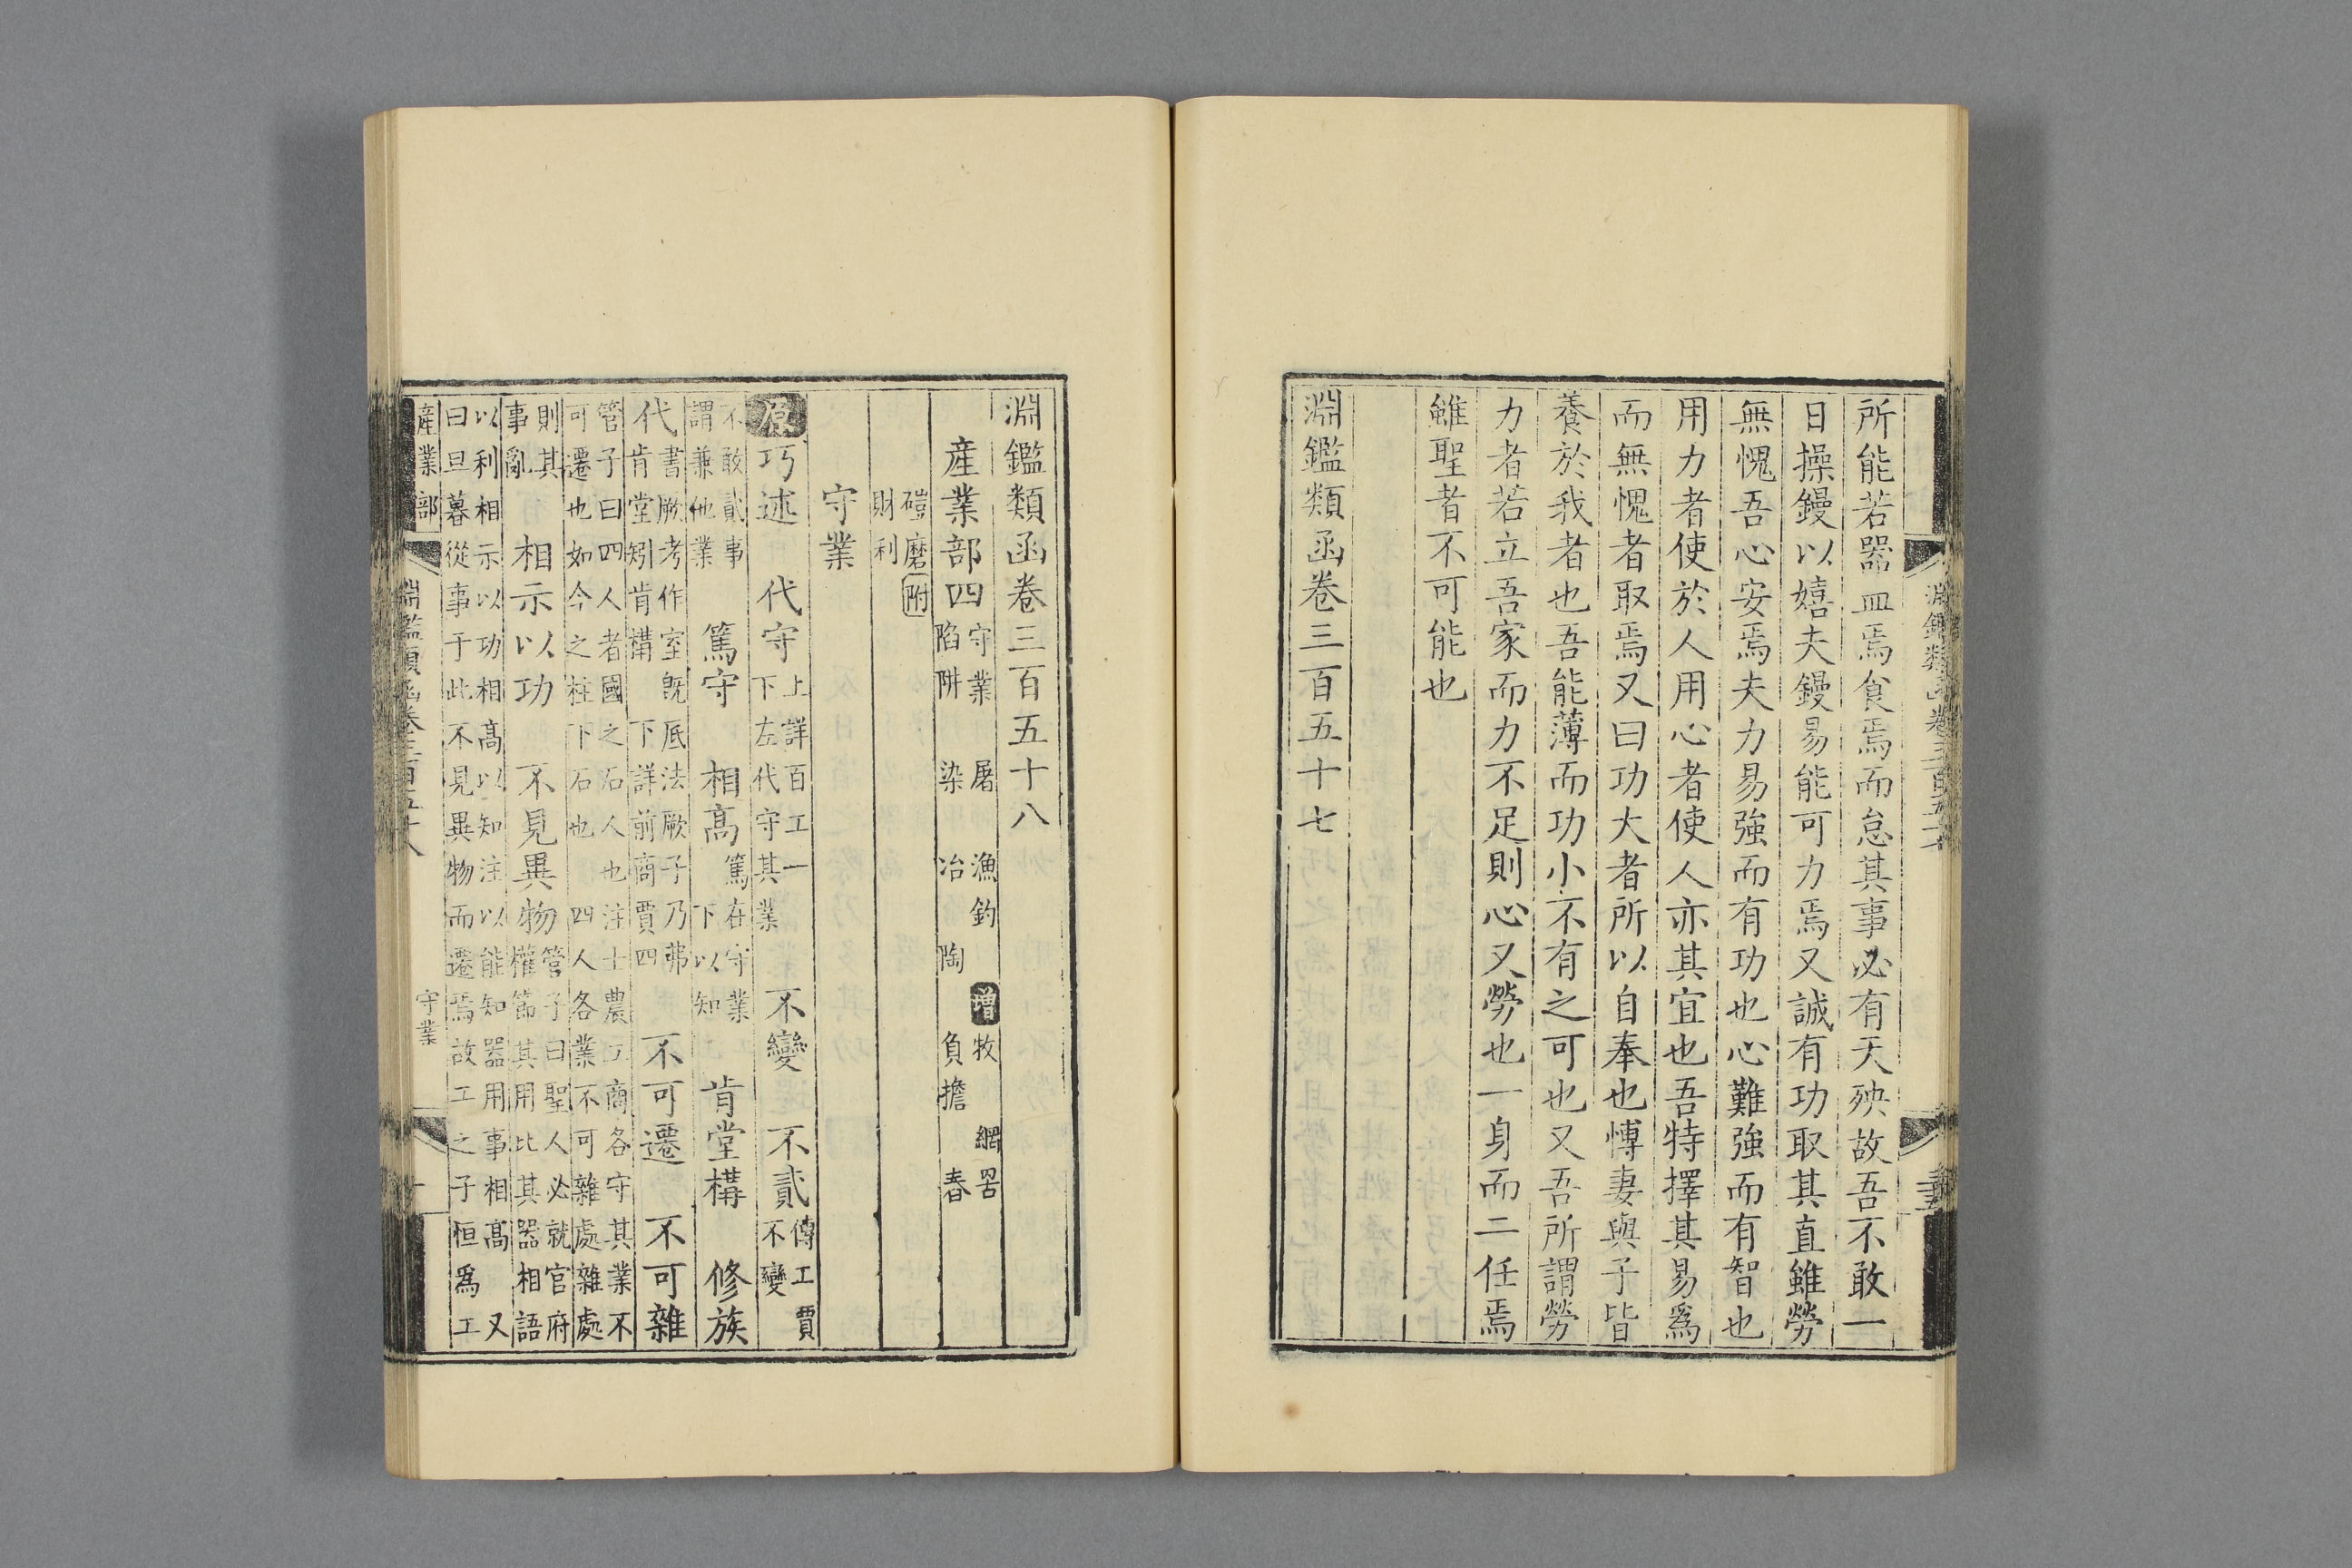 所能若器皿焉食焉而怠其事必有天殃故吾不敢一
日操鏝以嬉夫鏝易能可力焉又誠有功取其直雖勞
無愧吾心安焉夫力易強而有功也心難強而有智也
用力者使於人用心者使人亦其宜也吾特擇其易爲
而無愧者取焉又曰功大者所以自奉也愽妻與子皆
養於我者也吾能薄而功小不有之可也又吾所謂勞
力者若立吾家而力不足則心又勞也一身而二任焉
雖聖者不可能也
淵鑑類函卷三百五十七
淵鑑類函卷三百五十八
産業部四 守業 屠 漁釣 增 牧 網罟
陷阱 染 冶 陶 負擔 舂
磑磨 附
財利
守業
原 巧述 代守 上詳百工一
下左代守其業 不變 不貳 傳工賈
不變
不敢貳事
謂兼他業 篤守 相高 篤在守業
下以知 肯堂構 修族
代 書厥考作室旣厎法厥子乃弗
肯堂矧肯構 下詳前商賈四 不可遷 不可雜
管子曰四人者國之石人也注士農工商各守其業不
可遷也如今之柱下石也 四人各業不可雜處雜處
則其
事亂 相示以功 不見異物 管子曰聖人必就官府
權節其用比其器相語
以利相示以功相高以知注以能知器用事相高 又
曰旦暮從事于此不見異物而遷焉故工之子恒爲工
産業部 淵鑑類函卷三百五十八 守業